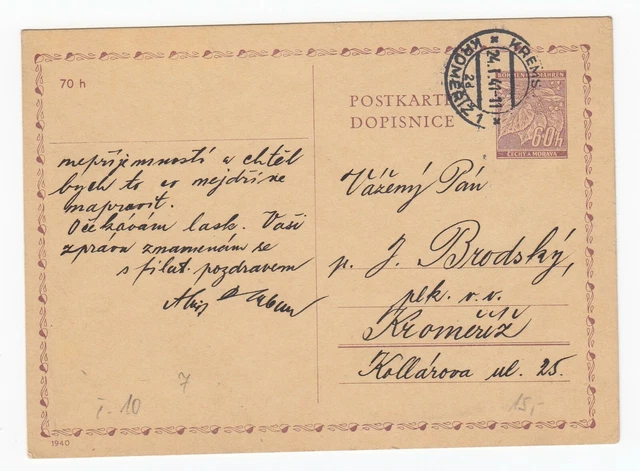 70 h
POSTKARTE
DOPISNICE
KREMSIER
KROMĚŘÍŽ 1
24.I.41-11
2d
BÖHMEN UND MÄHREN
60h
ČECHY A MORAVA
nepříjemností a chtěl
bych to co nejdříve
napravit.
Očekávám lask. Vaši
zprávu znamenám se
s filat. pozdravem
Vážený Pán
p. J. Brodský,
plk. v. v.
Kroměříž
Kollárova ul. 25.
7
č. 10
15,-
1940